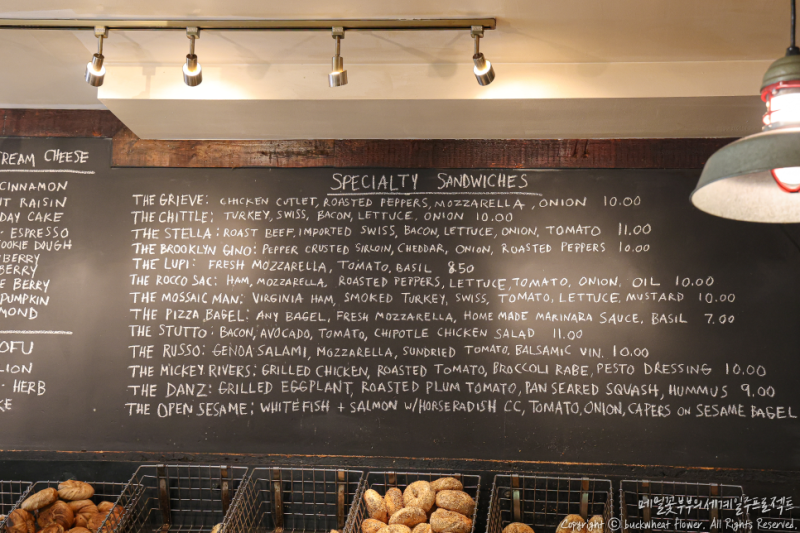 REAM CHEESE
CINNAMON
IT RAISIN
DAY CAKE
ESPRESSO
COOKIE DOUGH
BERRY
BERRY
E BERRY
PUMPKIN
MOND
OFU
LION
HERB
KE
SPECIALTY SANDWICHES
THE GRIEVE: CHICKEN CUTLET, ROASTED PEPPERS, MOZZARELLA, ONION 10.00
THE CHITTLE: TURKEY, SWISS, BACON, LETTUCE, ONION 10.00
THE STELLA: ROAST BEEF, IMPORTED SWISS, BACON, LETTUCE, ONION, TOMATO 11.00
THE BROOKLYN GINO: PEPPER CRUSTED SIRLOIN, CHEDDAR, ONION, ROASTED PEPPERS 10.00
THE LUPI: FRESH MOZZARELLA, TOMATO, BASIL 8.50
THE ROCCO SAC: HAM, MOZZARELLA, ROASTED PEPPERS, LETTUCE, TOMATO, ONION, OIL 10.00
THE MOSSAIC MAN: VIRGINIA HAM, SMOKED TURKEY, SWISS, TOMATO, LETTUCE, MUSTARD 10.00
THE PIZZA BAGEL: ANY BAGEL, FRESH MOZZARELLA, HOME MADE MARINARA SAUCE, BASIL 7.00
THE STUTTO: BACON, AVOCADO, TOMATO, CHIPOTLE CHICKEN SALAD 11.00
THE RUSSO: GENOA SALAMI, MOZZARELLA, SUNDRIED TOMATO, BALSAMIC VIN. 10.00
THE MICKEY RIVERS: GRILLED CHICKEN, ROASTED TOMATO, BROCCOLI RABE, PESTO DRESSING 10.00
THE DANZ: GRILLED EGGPLANT, ROASTED PLUM TOMATO, PAN SEARED SQUASH, HUMMUS 9.00
THE OPEN SESAME: WHITEFISH + SALMON W/HORSERADISH CC, TOMATO, ONION, CAPERS ON SESAME BAGEL
메밀꽃부부의세계일주프로젝트
Copyright © buckwheat flower. All Rights Reserved.